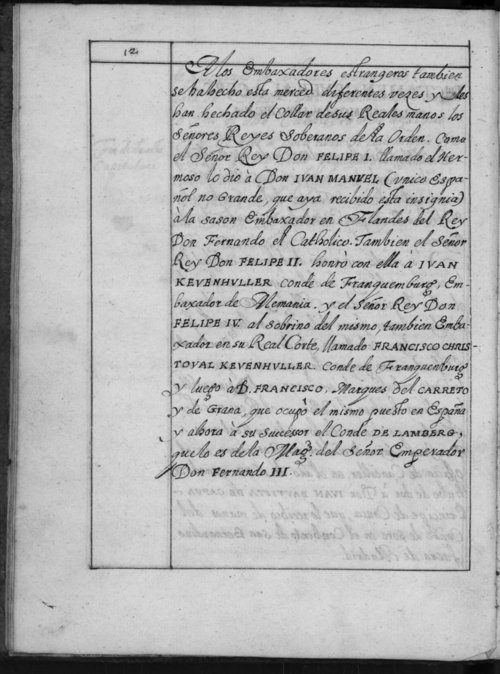 12
A los Embaxadores estrangeros tambien
se ha hecho esta merced diferentes vezes y les
han hechado el Collar de sus Reales manos los
Señores Reyes Soberanos de sta Orden. Como
el Señor Rey Don FELIPE I. llamado el Her-
moso lo diò à Don IVAN MANVEL (vnico Espa-
ñol no Grande, que aya recibido esta insignia)
à la sason Embaxador en Flandes del Rey
Don Fernando el Catholico. Tambien el Señor
Rey Don FELIPE II. honrò con ella à IVAN
KEVENHVLLER conde de Franquemburg, Em-
baxador de Alemania. y el Señor Rey Don
FELIPE IV. al sobrino del mismo, tambien Emba-
xador en su Real Corte, llamado FRANCISCO CHRIS-
TOVAL KEVENHVLLER. conde de Franquenburg
y luego à D. FRANCISCO. Marques del CARRETO
y de Grana, que ocupò el mismo puesto en España
y ahora à su Successor el Conde DE LAMBERG,
que lo es de la Magd. del Señor Emperador
Don Fernando III.